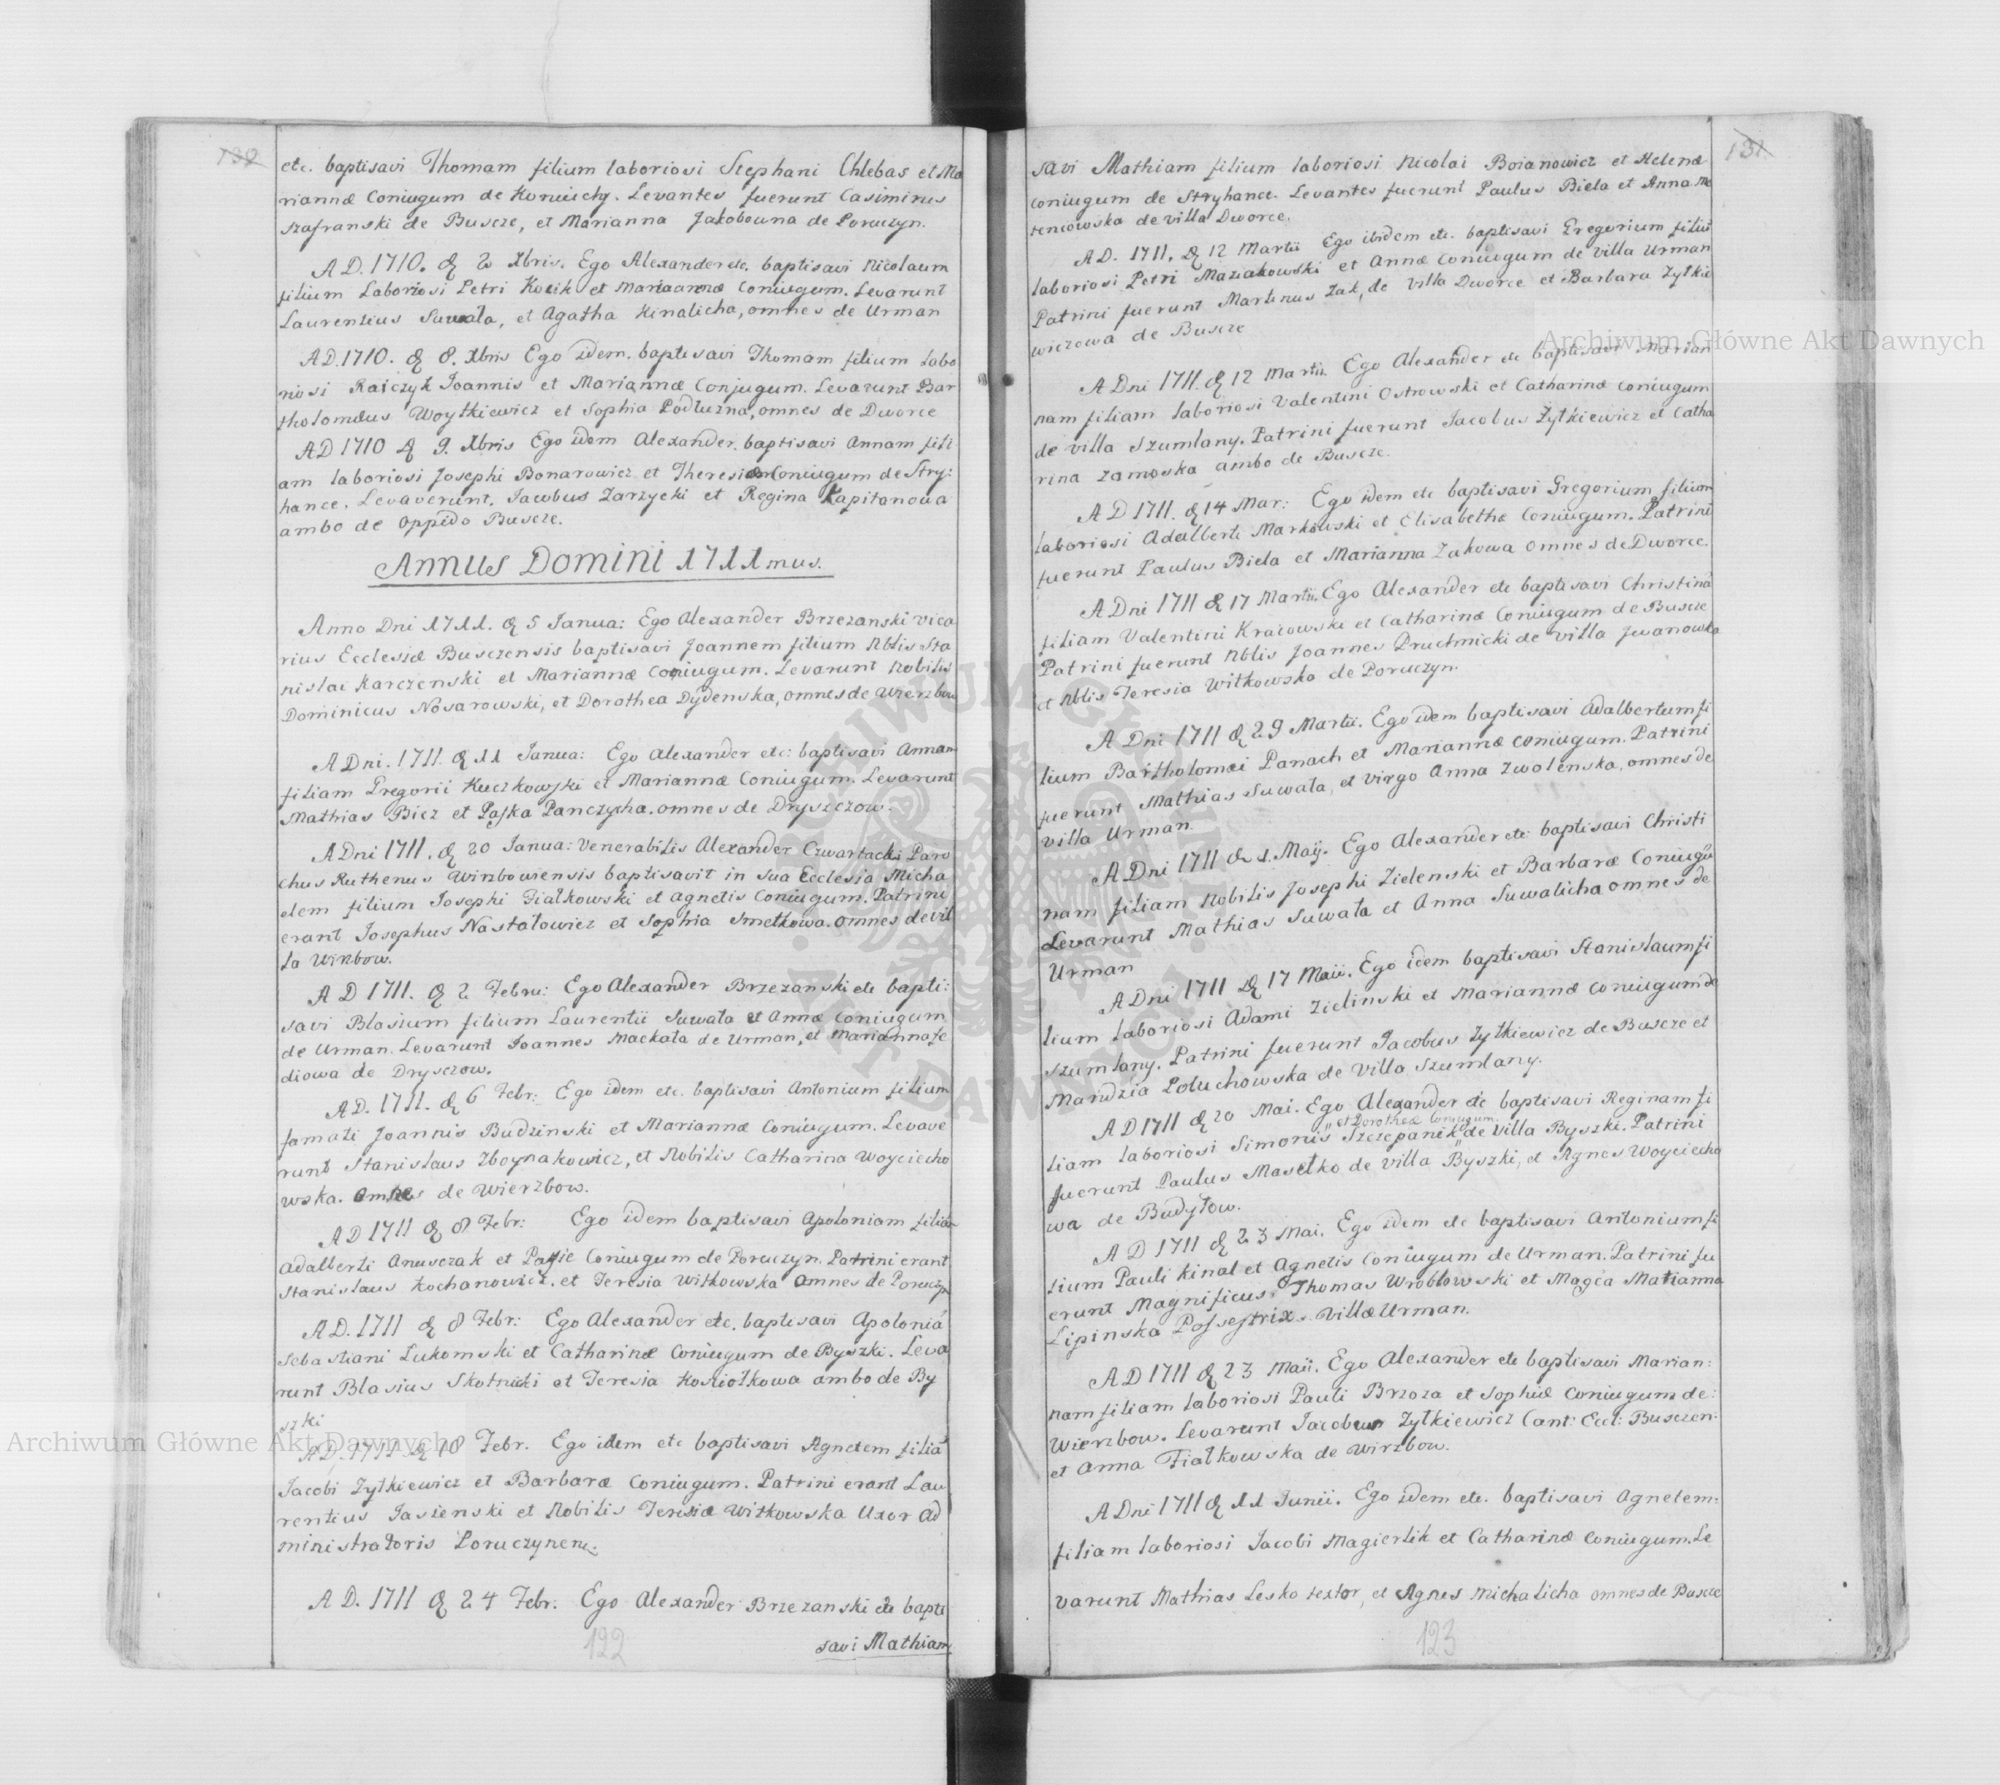 130
etc. baptisavi Thomam filium laboriosi Stephani Chlebas et Ma
riannæ Coniugum de Koniuchy. Levantes fuerunt Casimirus
Szafranski de Buscze, et Marianna Jakobowna de Poruczyn.
AD. 1710. d 2 Xbris. Ego Alexander etc. baptisavi Nicolaum
filium Laboriosi Petri Kocik et Mariannæ Coniugum. Levarunt
Laurentius Suwała, et Agatha Kinalicha, omnes de Urman
AD. 1710. d 8. Xbris Ego idem. baptisavi Thomam filium labo
riosi Raiczyk Joannis et Mariannæ Conjugum. Levarunt Bar
tholomæus Woytkiewicz et Sophia Podluzna, omnes de Dworce
AD 1710 d 9. Xbris Ego idem Alexander. baptisavi Annam fili
am laboriosi Josephi Bonarowicz et Theresiæ Coniugum de Stry:
hance. Levaverunt. Jacobus Zarzycki et Regina Kapitanowa
ambo de Oppido Buscze.
Annus Domini 1711mus.
Anno Dni 1711. d 5 Janua: Ego Alexander Brzezanski vica
rius Ecclesiæ Busczensis baptisavi Joannem filium Nblis Sta
nislai Karczenski et Mariannæ Coniugum. Levarunt Nobilis
Dominicus Nosarowski, et Dorothea Dydenska, omnes de Wierzbow
A Dni. 1711. d 11 Janua: Ego Alexander etc: baptisavi Annam
filiam Gregorii Kuczkowski et Mariannæ Coniugum. Levarunt
Mathias Bicz et Paska Panczycha. omnes de Dryszczow.
A Dni 1711. d 20 Janua: Venerabilis Alexander Czwartacki Paro
chus Ruthenus Winbowiensis baptisavit in sua Ecclesia Micha
elem filium Josephi Fiałkowski et Agnetis Coniugum. Patrini
erant Josephus Nastałowicz et Sophia Smetkowa. omnes de vil
la Winbow.
A D 1711. d 2 Febru: Ego Alexander Brzezanski etc bapti:
savi Blasium filium Laurentii Suwała et Annæ Coniugum
de Urman. Levarunt Joannes Maekała de Urman, et Marianna Fe
diowa de Drysczow.
AD. 1711. d 6 Febr: Ego idem etc. baptisavi Antonium filium
famati Joannis Budzinski et Mariannæ Coniugum. Levave
runt Stanislaus Zboynakowicz, et Nobilis Catharina Woyciecho
wska. omnes de Wierzbow.
AD 1711 d 8 Febr: Ego idem baptisavi Apoloniam filia
Adalberti Anusczak et Pasie Coniugum de Poruczyn. Patrini erant
Stanislaus Kochanowicz. et Teresia Witkowska omnes de Poruczyn
AD. 1711 d 8 Febr: Ego Alexander etc. baptisavi Apolonia
Sebastiani Lukomski et Catharinæ Coniugum de Byszki. Leva
runt Blasius Skotnicki et Teresia Kosiołkowa ambo de By
szki
AD. 1711 d 18 Febr. Ego idem etc baptisavi Agnetem filia
Jacobi Zytkiewicz et Barbaræ Coniugum. Patrini erant Lau
rentius Jasienski et Nobilis Teresia Witkowska Uxor Ad
ministratoris Poruczynen:
AD. 1711 d 24 Febr. Ego Alexander Brzezanski etc bapti
savi Mathiam
122
131
savi Mathiam filium laboriosi Nicolai Boianowicz et Helenæ
Coniugum de Stryhance. Levantes fuerunt Paulus Biela et Anna Ma
tencowska de villa Dworce.
AD. 1711. d 12 Martii Ego ibidem etc. baptisavi Gregorium filiu
laboriosi Petri Maziakowski et Annæ Coniugum de villa Urman
Patrini fuerunt Martinus Zak, de villa Dworce et Barbara Zytkie
wiczowa de Buscze
A Dni 1711. d 12 Martii Ego Alexander etc baptisavi Marian
nam filiam laboriosi Valentini Ostrowski et Catharinæ Coniugum
de villa Szumlany. Patrini fuerunt Jacobus Zytkiewicz et Catha
rina Zamoska ambo de Buscze.
AD 1711. d 14 Mar: Ego idem etc baptisavi Gregorium filium
laboriosi Adalberti Markowski et Elisabethæ Coniugum. Patrini
fuerunt Paulus Biela et Marianna Zakowa omnes de Dworce.
A Dni 1711 d 17 Martii. Ego Alexander etc baptisavi Christina
filiam Valentini Kracowski et Catharinæ Coniugum de Buscze
Patrini fuerunt Nblis Joannes Druchnicki de villa Jwanowka
et Nblis Teresia Witkowska de Poruczyn.
A Dni 1711 d 29 Martii. Ego idem baptisavi Adalbertum fi
lium Bartholomei Panach et Mariannæ Coniugum. Patrini
fuerunt Mathias Suwała, et virgo Anna Zwolenska, omnes de
villa Urman.
A Dni 1711 d 1. Maij. Ego Alexander etc baptisavi Christi
nam filiam Nobilis Josephi Zielenski et Barbaræ Coniugu
Levarunt Mathias Suwała et Anna Suwalicha omnes de
Urman
A Dni 1711 d 17 Maii. Ego idem baptisavi Stanislaum fi
lium laboriosi Adami Zielinski et Mariannæ Coniugum de
Szumlany. Patrini fuerunt Jacobus Zytkiewicz de Buscze et
Marudzia Poluchowska de villa Szumlany.
AD 1711 d 20 Mai. Ego Alexander etc baptisavi Reginam fi
et Dorotheæ Coniugum
liam laboriosi Simonis "Szczepanik" de villa Byszki. Patrini
fuerunt Paulus Masełko de villa Byszki, et Agnes Woyciecho
wa de Budyłow.
A D 1711 d 23 Mai. Ego idem etc baptisavi Antonium fi
lium Pauli Kinal et Agnetis Coniugum de Urman. Patrini fu
erunt Magnificus Thomas Wroblowski et Magca Marianna
Lipinska Possestrix villæ Urman.
AD 1711 d 23 Maii. Ego Alexander etc baptisavi Marian:
nam filiam laboriosi Pauli Brzoza et Sophiæ Coniugum de:
Wierzbow. Levarunt Jacobus Zytkiewicz Cant: Eccl: Busczen:
et Anna Fiałkowska de Wirzbow.
A Dni 1711 d 11 Junii. Ego idem etc. baptisavi Agnetem:
filiam laboriosi Jacobi Magierlik et Catharinæ Coniugum. Le
varunt Mathias Lesko textor, et Agnes Michalicha omnes de Buscze
123
Archiwum Główne Akt Dawnych
Archiwum Główne Akt Dawnych